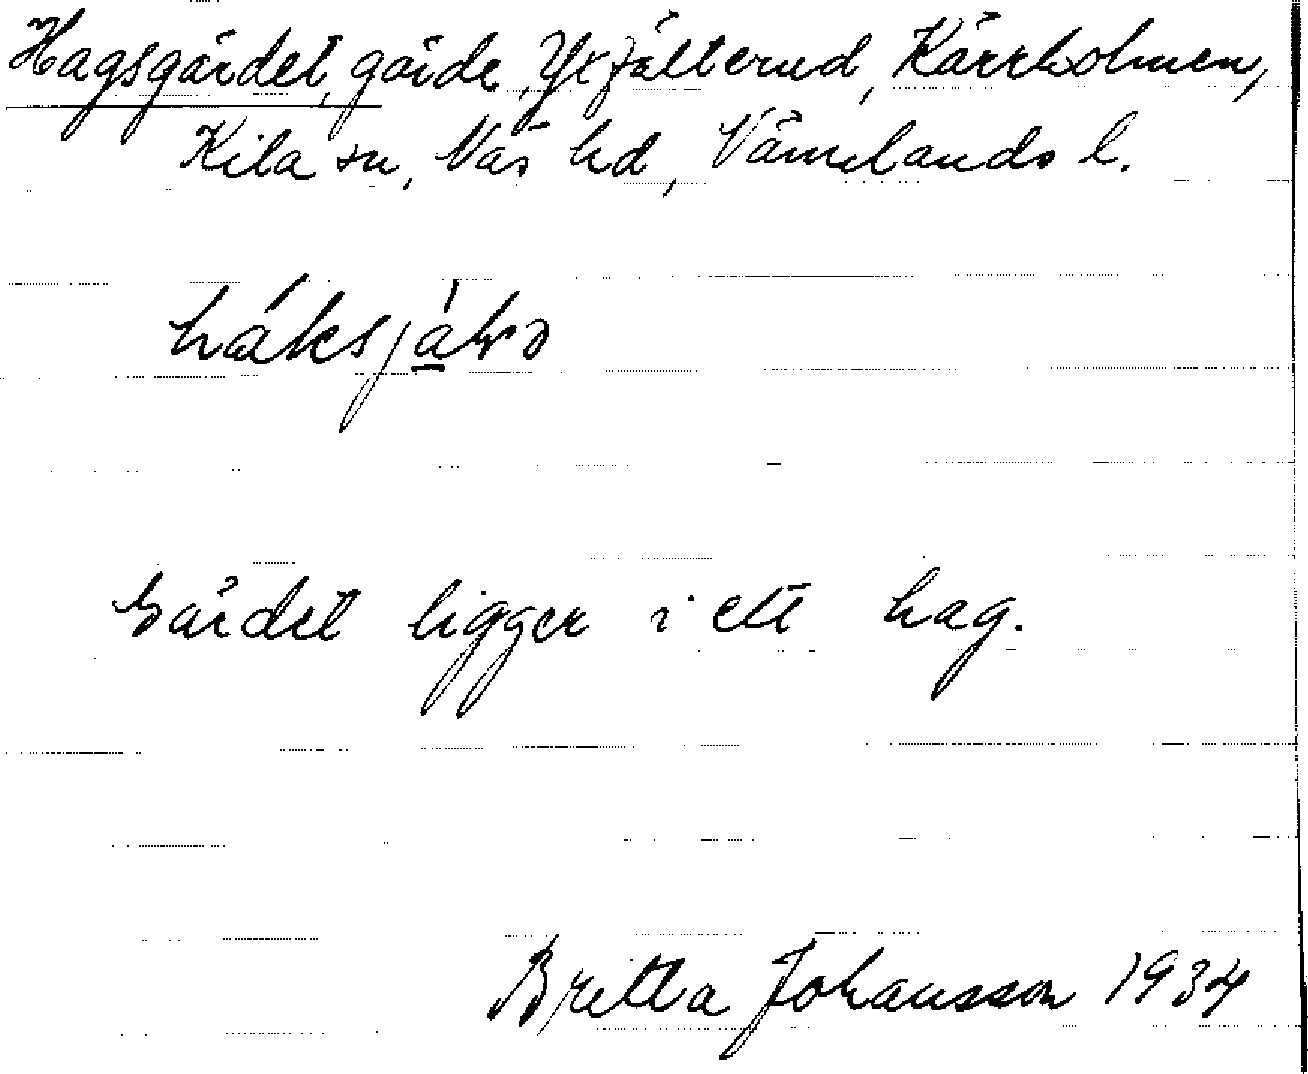 Hagsgärdet, gärde, Yxfälterud, Kärrholmen,
Kila sn, Näs hd, Värmlands l.
Gärdet ligger i ett hag.
Britta Johansson 1934